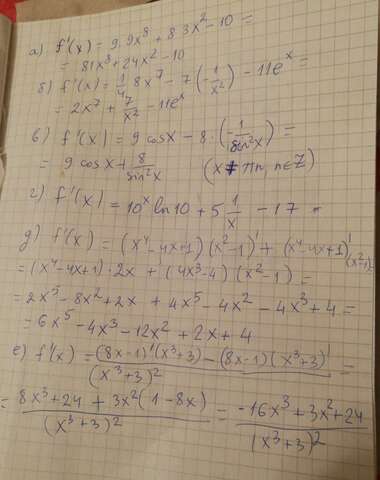 а) f'(x) = 9·9x⁸ + 8·3x² - 10 =
= 81x⁸ + 24x² - 10
б) f'(x) = 1/4 · 8x⁷ - 7(-1/x²) - 11eˣ =
= 2x⁷ + 7/x² - 11eˣ
в) f'(x) = 9 cosx - 8·(-1/sin²x) =
= 9 cosx + 8/sin²x (x ≠ πn, n∈Z)
г) f'(x) = 10ˣ ln10 + 5 1/x - 17
д) f'(x) = (x⁴-4x+1)(x²-1)' + (x⁴-4x+1)'(x²-1) =
= (x⁴-4x+1)·2x + (4x³-4)(x²-1) =
= 2x⁵ - 8x² + 2x + 4x⁵ - 4x² - 4x³ + 4 =
= 6x⁵ - 4x³ - 12x² + 2x + 4
е) f'(x) = ((8x-1)'(x³+3) - (8x-1)(x³+3)')/(x³+3)² =
= (8x³+24 + 3x²(1-8x))/(x³+3)² = (-16x³+3x²+24)/(x³+3)²